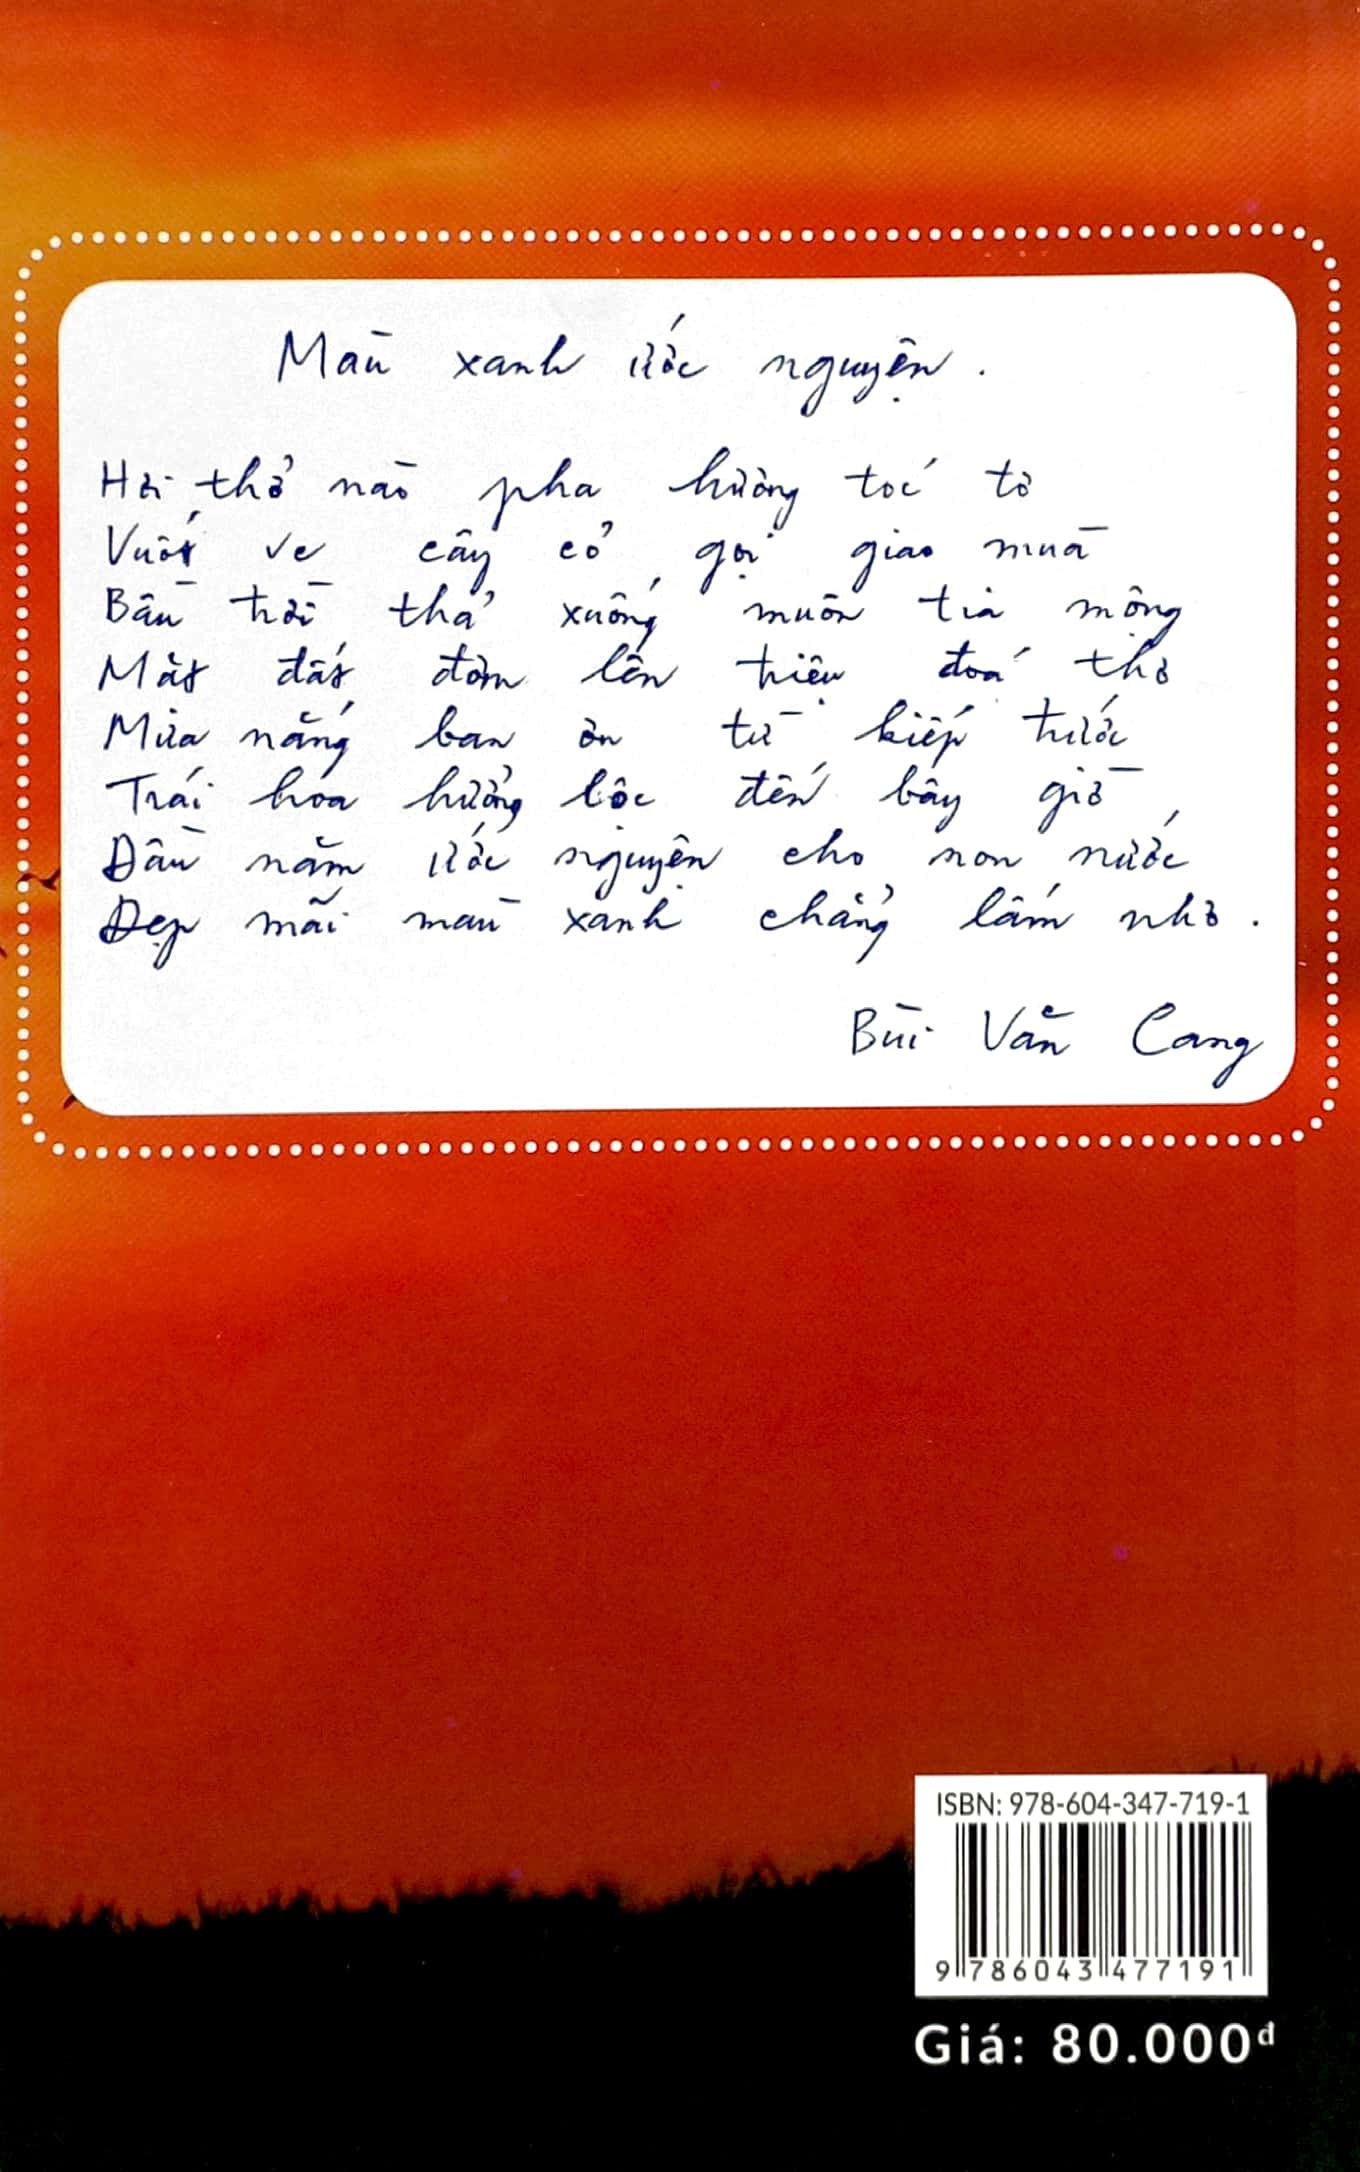 Màu xanh ước nguyện.
Hơi thở nào pha hương tóc tơ
Vuốt ve cây cỏ gọi giao mùa
Bầu trời thả xuống muôn tia mộng
Mặt đất đơm lên triệu đoá thơ
Mưa nắng ban ơn từ kiếp trước
Trái hoa hưởng lộc đến bây giờ
Đầu năm ước nguyện cho non nước
Đẹp mãi màu xanh chẳng lấm nhơ.
Bùi Văn Cang
ISBN: 978-604-347-719-1
9 786043 477191
Giá: 80.000đ